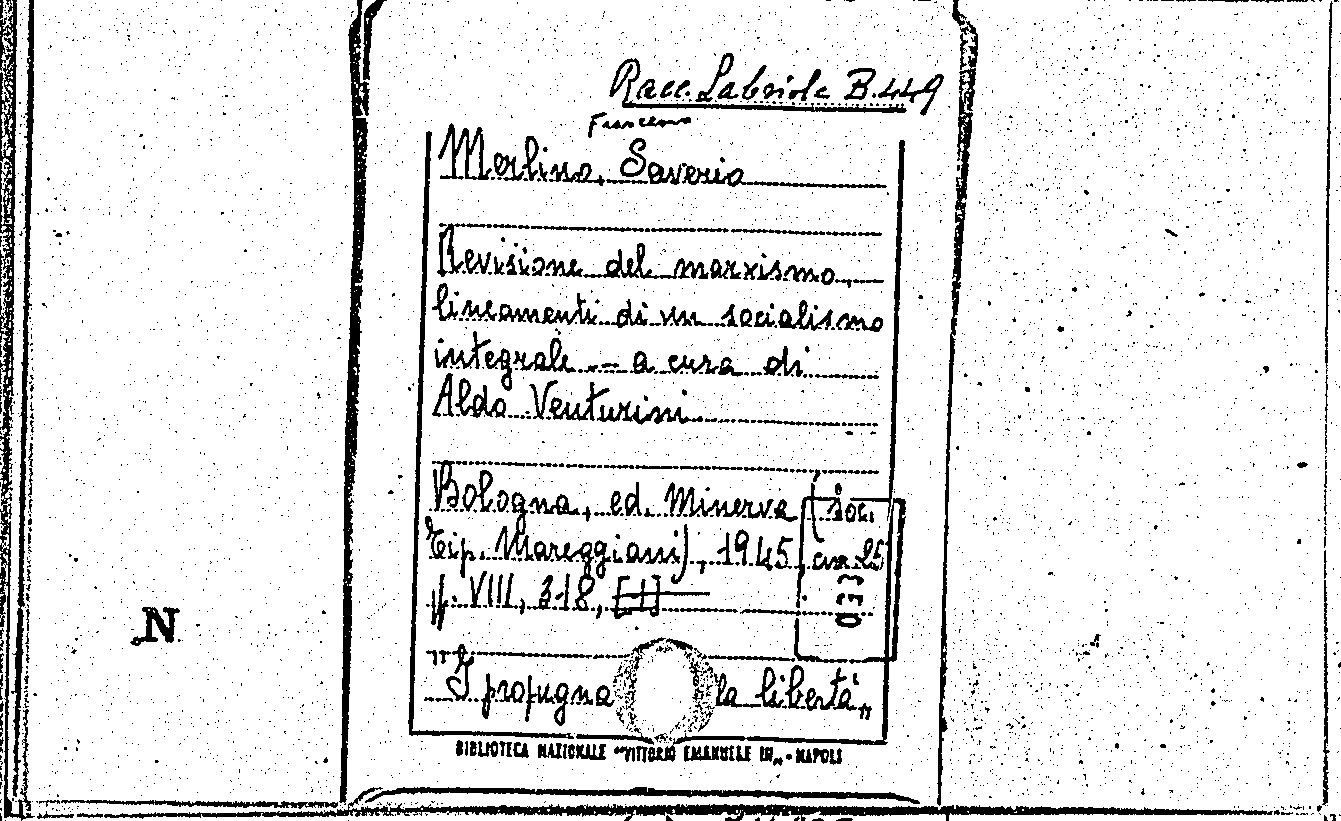 Racc. Labriola B.449
Francesco
Merlino, Saverio
Revisione del marxismo,
lineamenti di un socialismo
integrale -- a cura di
Aldo Venturini
Bologna, ed. Minerva (Soc.
Tip. Mareggiani), 1945, cm 25
pp. VIII, 318, [1]
N
033
„I propugna la libertà„
BIBLIOTECA NAZIONALE "VITTORIO EMANUELE III„ - NAPOLI